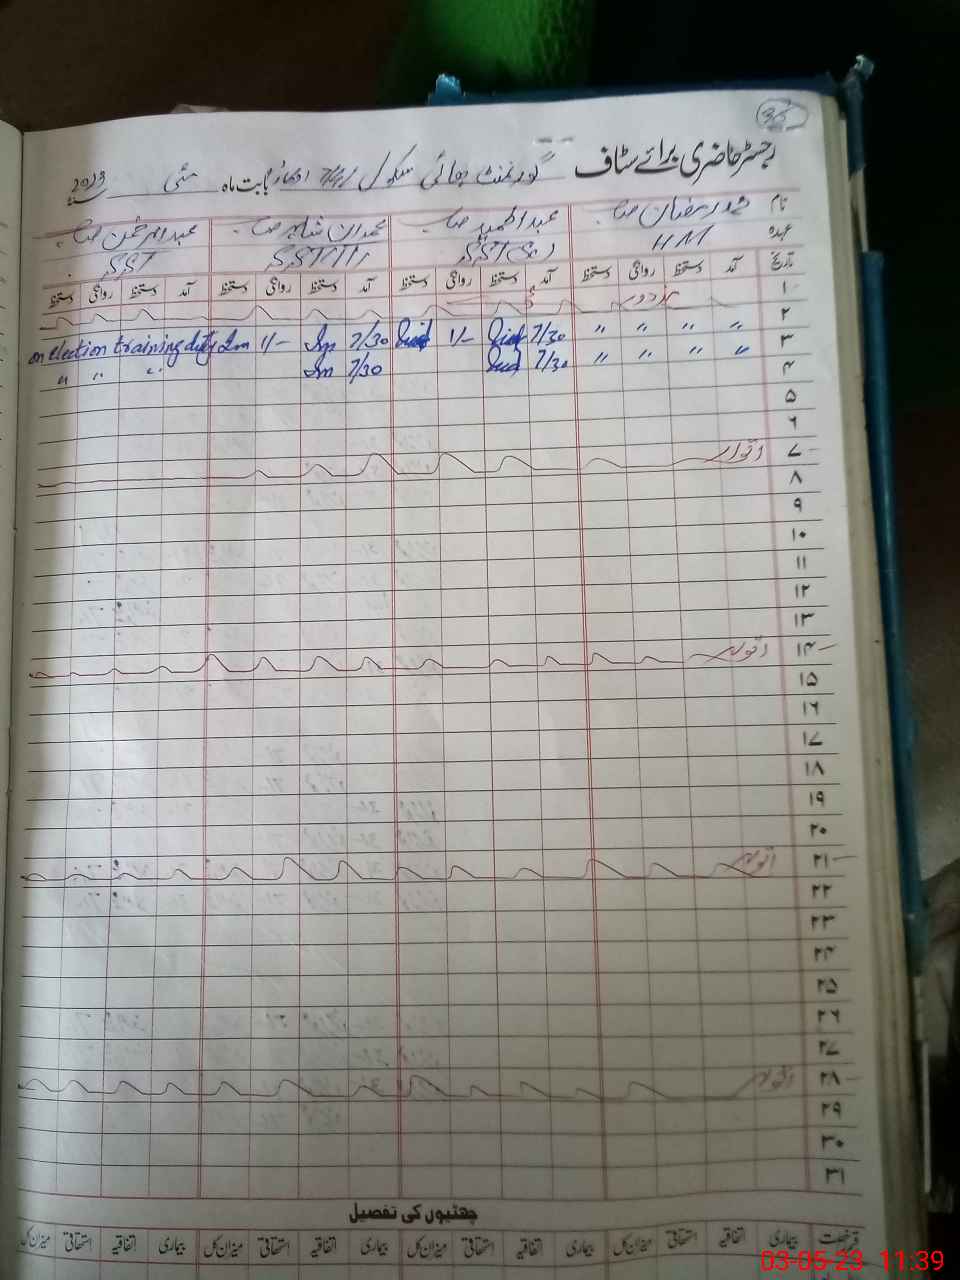 35
رجسٹر حاضری برائے سٹاف گورنمنٹ ہائی سکول بابت ماہ مئی 2023
نام محمد رمضان صاحب عبدالحمید صاحب عمران شاہد صاحب عبدالرحمن صاحب
عہدہ HM SST SST SST
تاریخ آمد دستخط روانگی دستخط آمد دستخط روانگی دستخط آمد دستخط روانگی دستخط آمد دستخط روانگی دستخط
۱
۲
۳ " " " " 7/30 1/- 7/30 1/- on election training duty
۴ " " " " 7/30 7/30 " " "
۵
۶
۷ اتوار
۸
۹
۱۰
۱۱
۱۲
۱۳
۱۴ اتوار
۱۵
۱۶
۱۷
۱۸
۱۹
۲۰
۲۱ اتوار
۲۲
۲۳
۲۴
۲۵
۲۶
۲۷
۲۸ اتوار
۲۹
۳۰
۳۱
چھٹیوں کی تفصیل
قسم رخصت بیماری اتفاقیہ استحقاقی میزان کل بیماری اتفاقیہ استحقاقی میزان کل بیماری اتفاقیہ استحقاقی میزان کل بیماری اتفاقیہ استحقاقی میزان کل
03-05-23 11:39